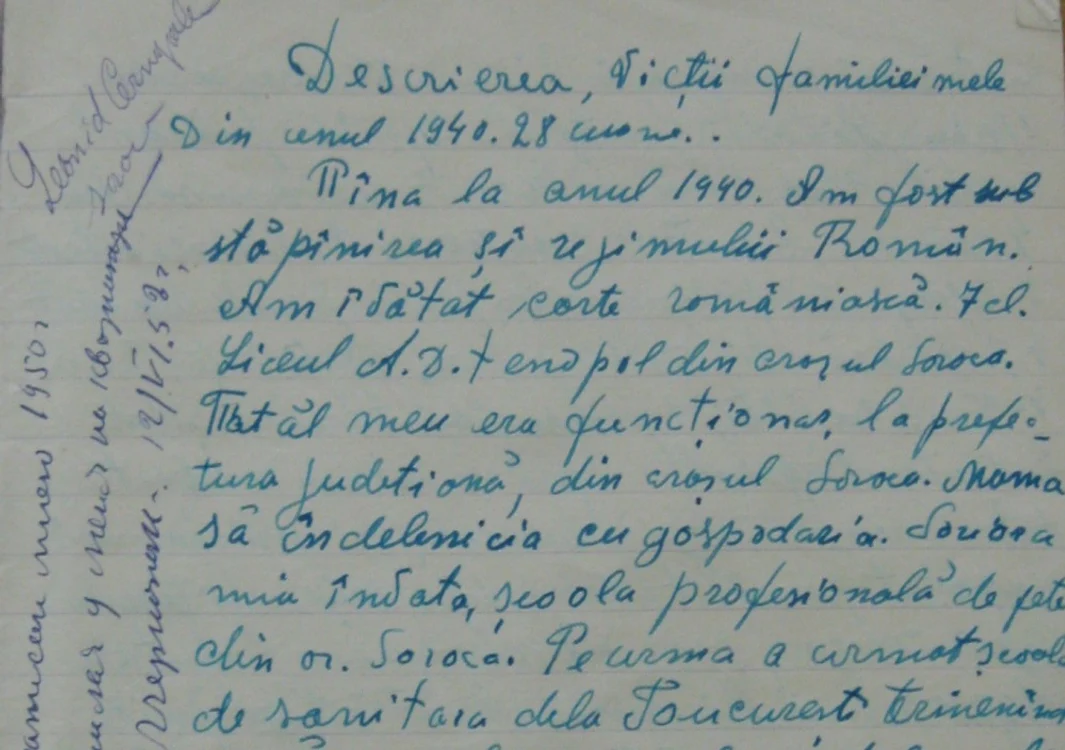 Descrierea, Vicții familiei mele
Din anul 1940. 28 iune..
Pîna la anul 1940. Am fost sub
stăpînirea și rejimului Român.
Am îvățat carte româniască. 7 cl.
Liceul A.D. Xenopol din orașul Soroca.
Tatăl meu era funcționar, la prefe-
tura județionă, din orașul Soroca. Mama
să îndelenicia cu gospodaria. Soriora
mia învata, școola profesională de fete
din or. Soroca. Pe urma a urmat școola
de sanitara dela Boucuresti
Leonid Cernopole
1950г
у меня на квартире
12/VI.53г,